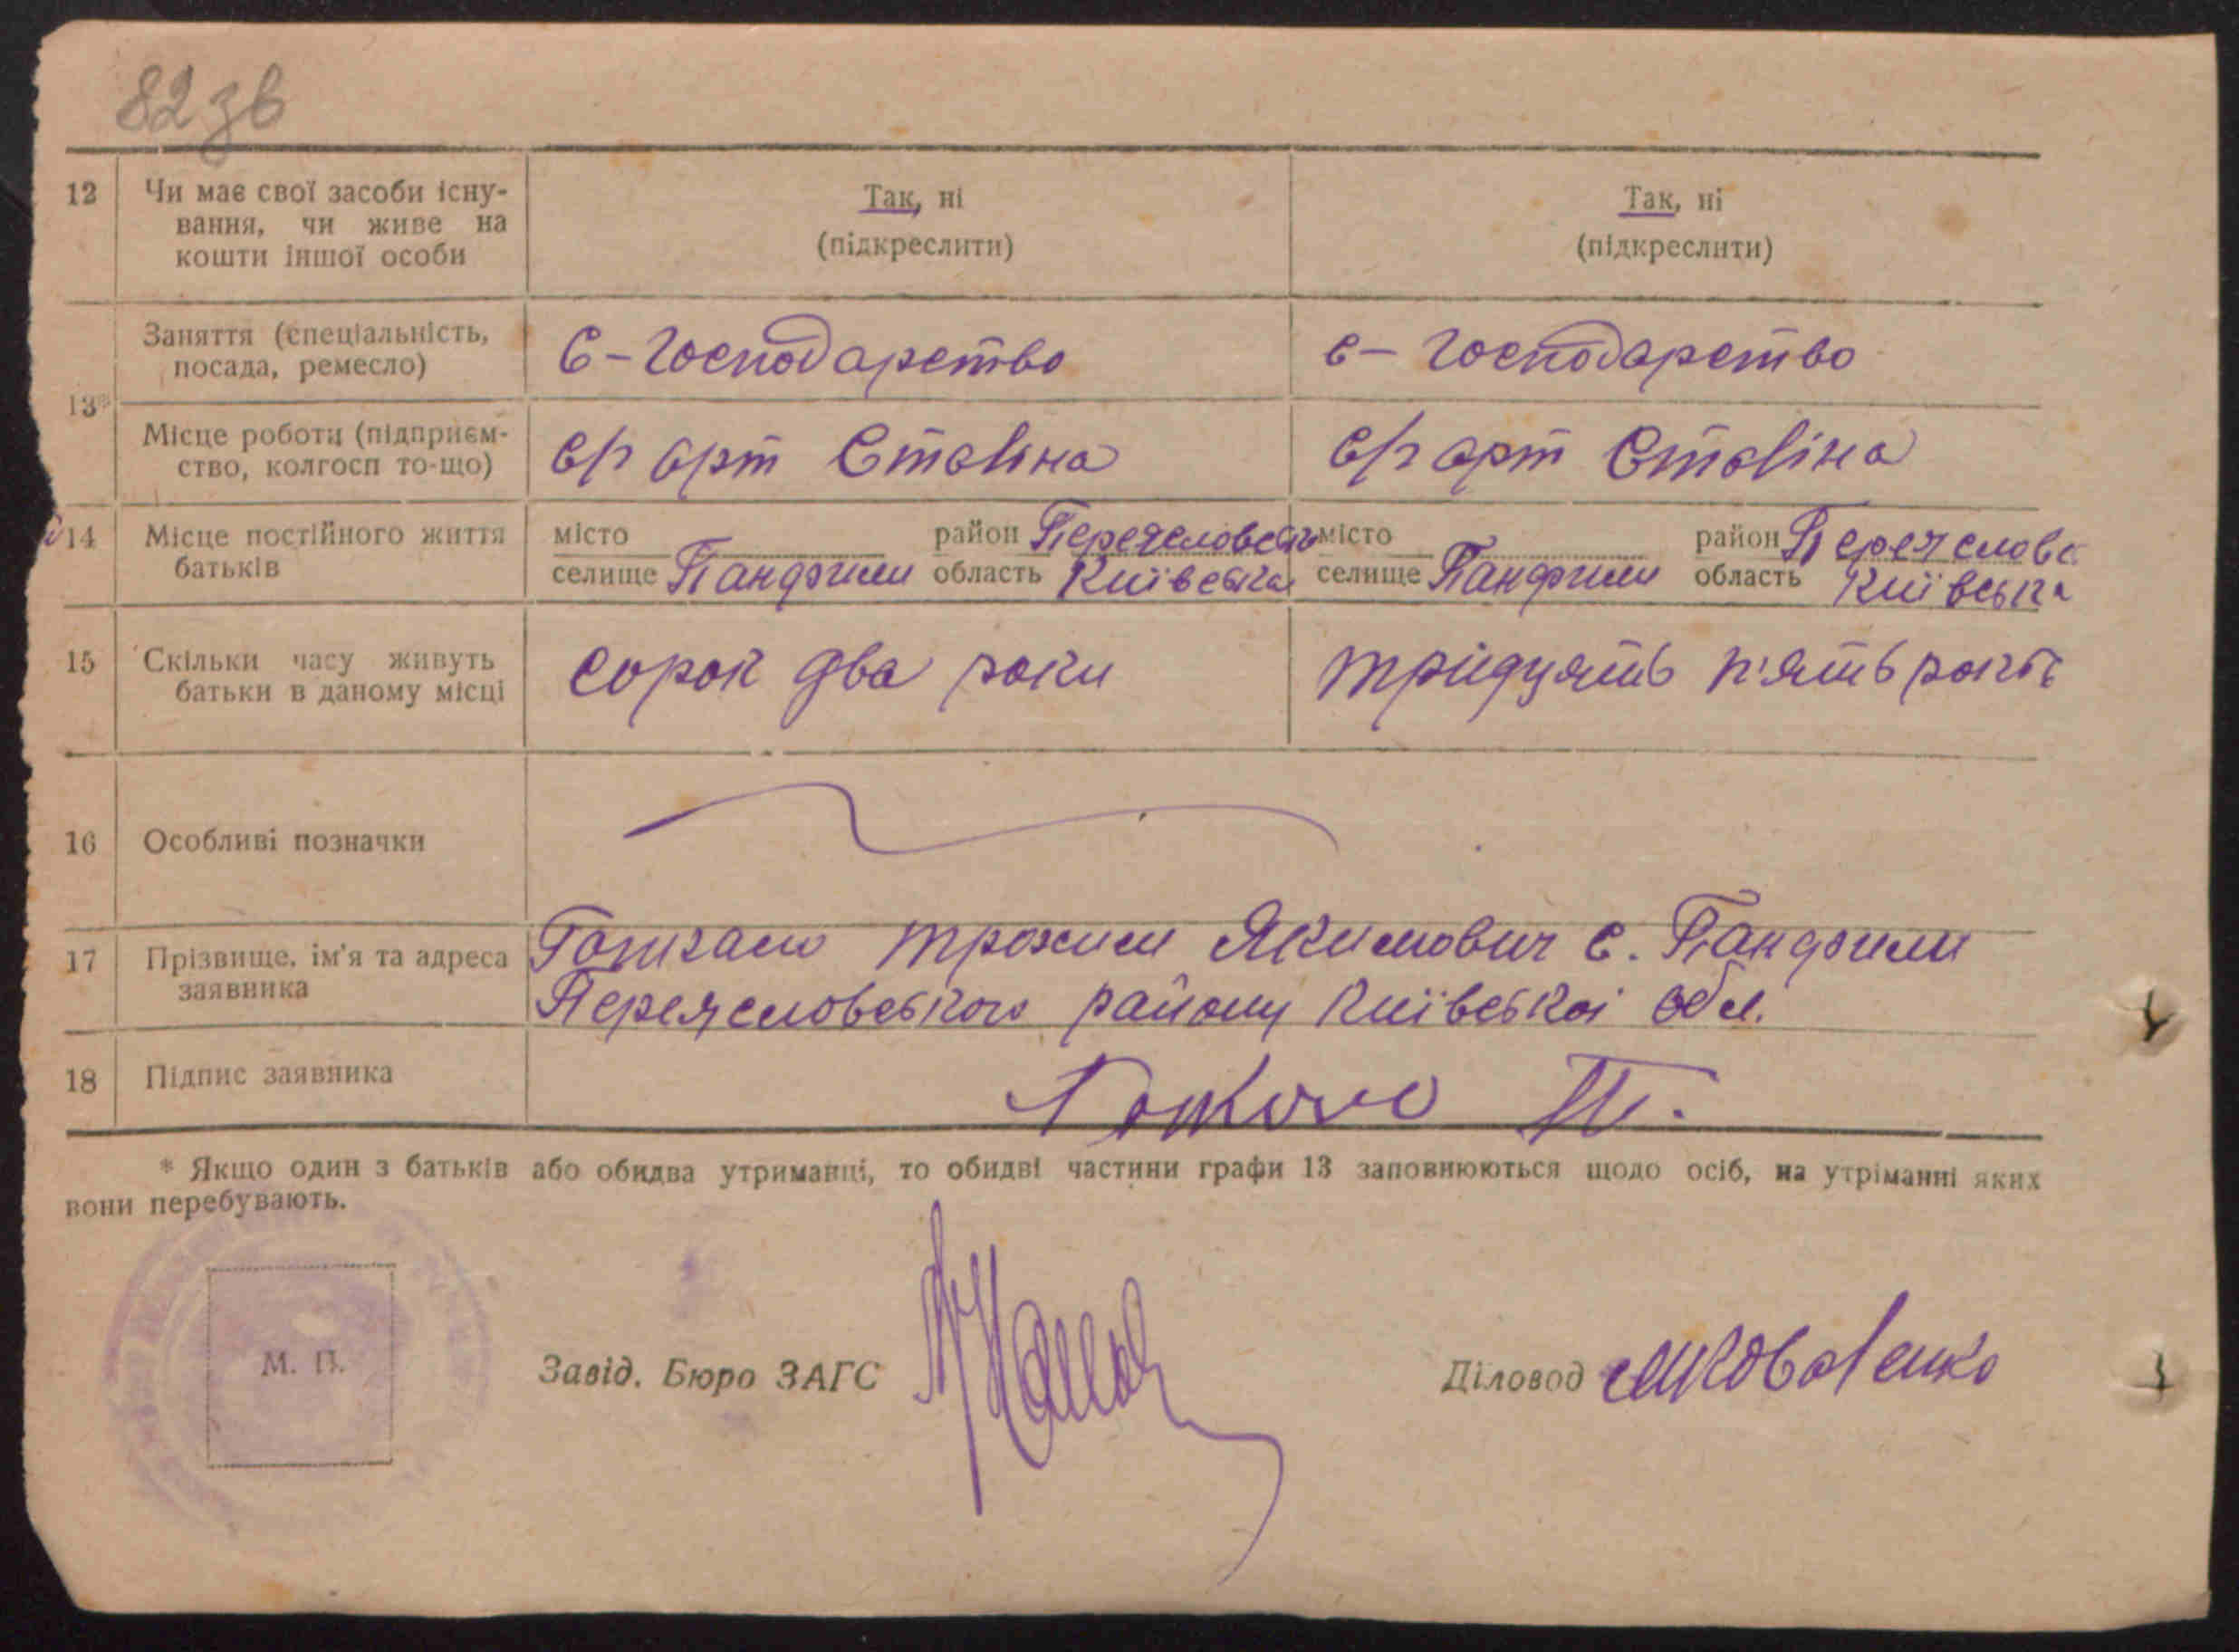 82 зв
12 Чи має свої засоби існу- Так, ні Так, ні
вання, чи живе на (підкреслити) (підкреслити)
кошти іншої особи
Заняття (спеціальність, С-Господарство с-Господарство
посада, ремесло)
13*
Місце роботи (підприєм- с/г арт Сталіна с/г арт Сталіна
ство, колгосп то-що)
14 Місце постійного життя місто район Переяславськ місто район Переяславс
батьків селище Панфили область Київська селище Панфили область Київська
15 Скільки часу живуть сорок два роки тридцять п'ять років
батьки в даному місці
16 Особливі позначки
17 Прізвище, ім'я та адреса Трохим Якимович с. Панфили
заявника Переяславського району Київської обл.
18 Підпис заявника
* Якщо один з батьків або обидва утриманці, то обидві частини графи 13 заповнюються щодо осіб, на утріманні яких
вони перебувають.
М. П. Завід. Бюро ЗАГС Діловод МКоваленко